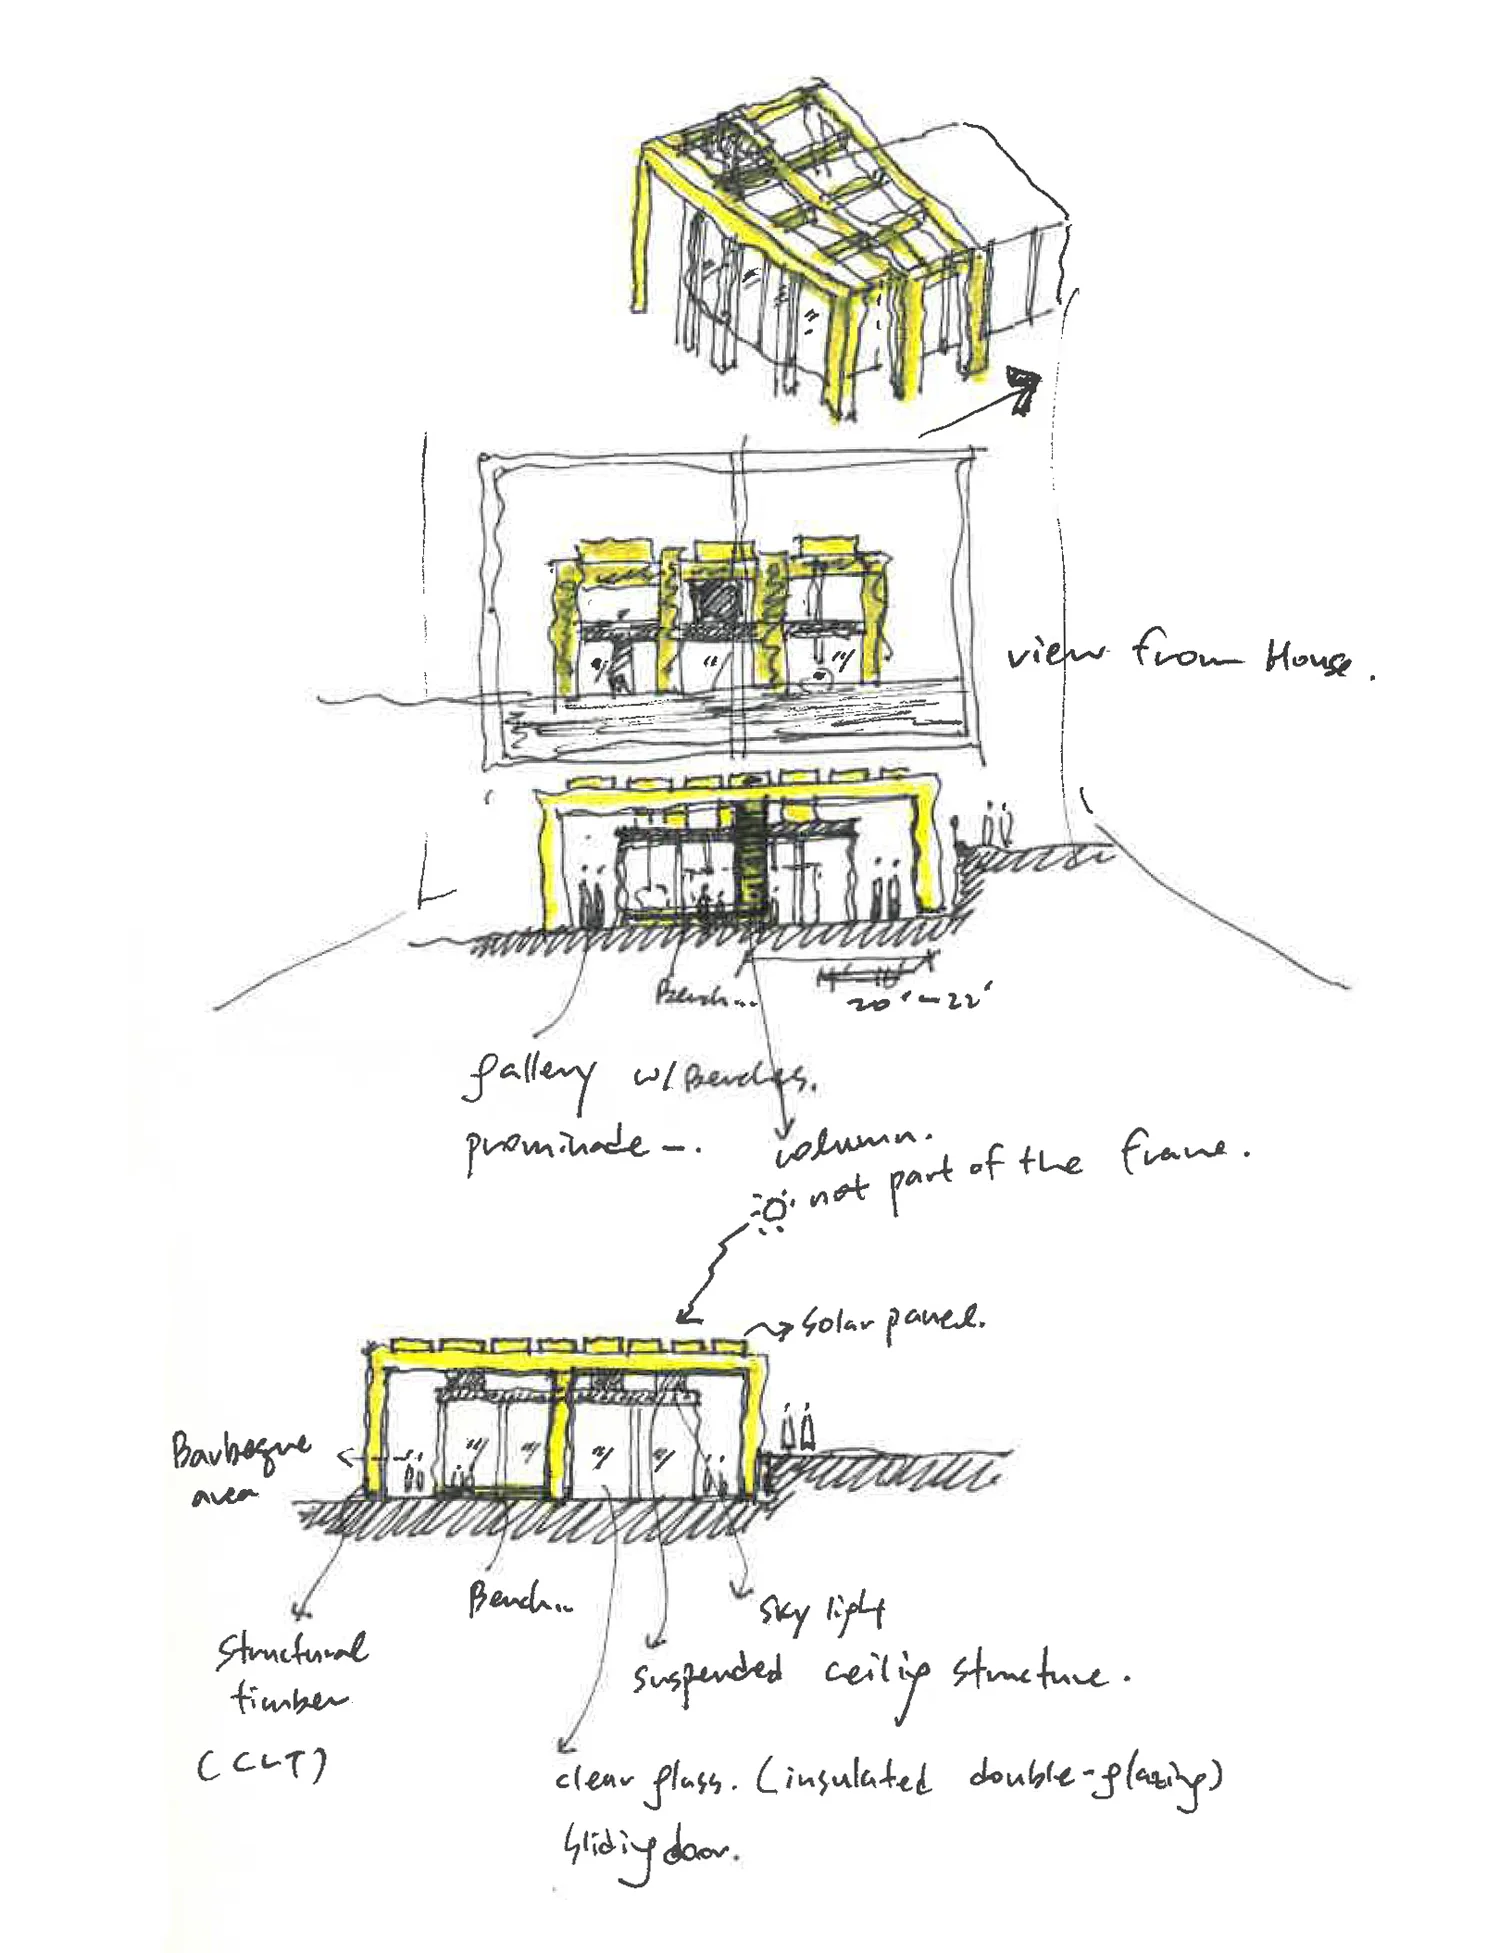 view from House.
Bench...
20'-22'
gallery w/ Benches.
prominade -.
column.
not part of the frame.
solar panel.
Barbeque
area
Bench...
sky light
structural
timber
(CLT)
suspended ceilig structure.
clear glass. (insulated double-glazing)
slidig door.